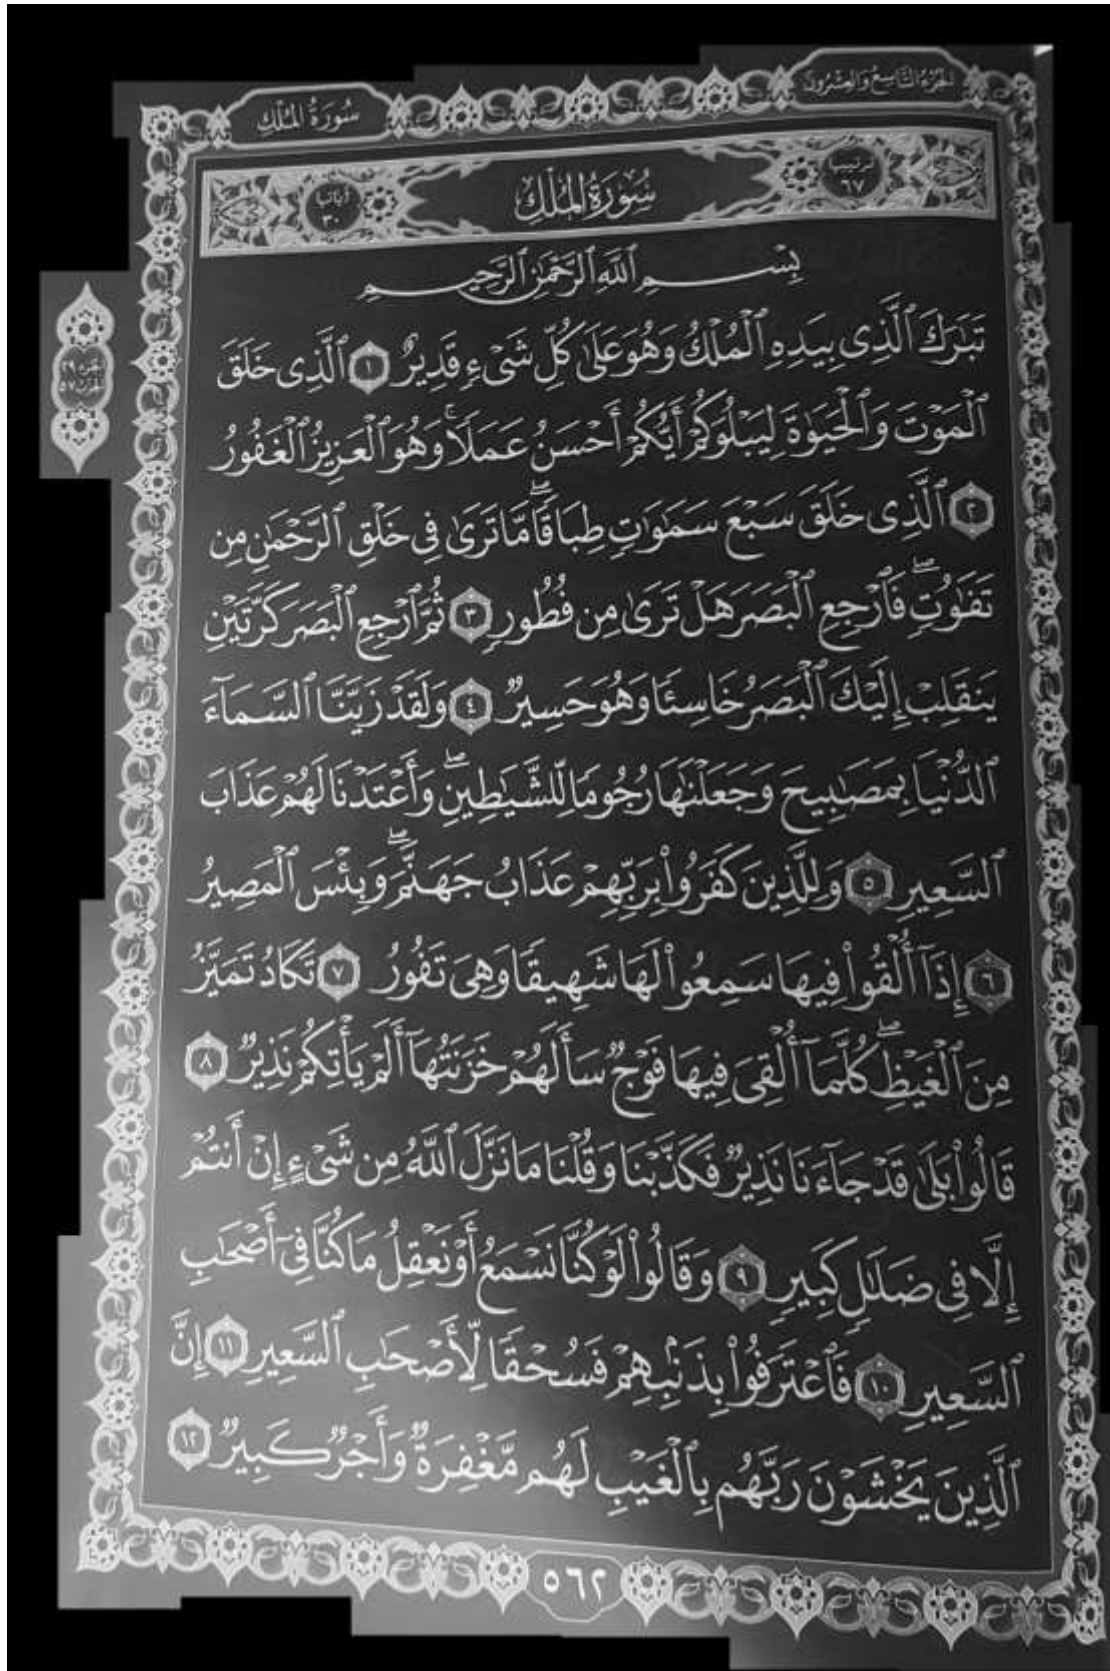 الجزء التاسع والعشرون
سُورَةُ المُلْكِ
ترتيبها ٦٧
سُورَةُ المُلْكِ
آياتها ٣٠
بِسْمِ ٱللَّهِ ٱلرَّحْمَٰنِ ٱلرَّحِيمِ
تَبَٰرَكَ ٱلَّذِى بِيَدِهِ ٱلْمُلْكُ وَهُوَ عَلَىٰ كُلِّ شَىْءٍ قَدِيرٌ ١ ٱلَّذِى خَلَقَ
ٱلْمَوْتَ وَٱلْحَيَوٰةَ لِيَبْلُوَكُمْ أَيُّكُمْ أَحْسَنُ عَمَلًا ۚ وَهُوَ ٱلْعَزِيزُ ٱلْغَفُورُ
٢ ٱلَّذِى خَلَقَ سَبْعَ سَمَٰوَٰتٍ طِبَاقًا ۖ مَّا تَرَىٰ فِى خَلْقِ ٱلرَّحْمَٰنِ مِن
تَفَٰوُتٍ ۖ فَٱرْجِعِ ٱلْبَصَرَ هَلْ تَرَىٰ مِن فُطُورٍ ٣ ثُمَّ ٱرْجِعِ ٱلْبَصَرَ كَرَّتَيْنِ
يَنقَلِبْ إِلَيْكَ ٱلْبَصَرُ خَاسِئًا وَهُوَ حَسِيرٌ ٤ وَلَقَدْ زَيَّنَّا ٱلسَّمَآءَ
ٱلدُّنْيَا بِمَصَٰبِيحَ وَجَعَلْنَٰهَا رُجُومًا لِّلشَّيَٰطِينِ ۖ وَأَعْتَدْنَا لَهُمْ عَذَابَ
ٱلسَّعِيرِ ٥ وَلِلَّذِينَ كَفَرُوا۟ بِرَبِّهِمْ عَذَابُ جَهَنَّمَ ۖ وَبِئْسَ ٱلْمَصِيرُ
٦ إِذَآ أُلْقُوا۟ فِيهَا سَمِعُوا۟ لَهَا شَهِيقًا وَهِىَ تَفُورُ ٧ تَكَادُ تَمَيَّزُ
مِنَ ٱلْغَيْظِ ۖ كُلَّمَآ أُلْقِىَ فِيهَا فَوْجٌ سَأَلَهُمْ خَزَنَتُهَآ أَلَمْ يَأْتِكُمْ نَذِيرٌ ٨
قَالُوا۟ بَلَىٰ قَدْ جَآءَنَا نَذِيرٌ فَكَذَّبْنَا وَقُلْنَا مَا نَزَّلَ ٱللَّهُ مِن شَىْءٍ إِنْ أَنتُمْ
إِلَّا فِى ضَلَٰلٍ كَبِيرٍ ٩ وَقَالُوا۟ لَوْ كُنَّا نَسْمَعُ أَوْ نَعْقِلُ مَا كُنَّا فِىٓ أَصْحَٰبِ
ٱلسَّعِيرِ ١٠ فَٱعْتَرَفُوا۟ بِذَنۢبِهِمْ فَسُحْقًا لِّأَصْحَٰبِ ٱلسَّعِيرِ ١١ إِنَّ
ٱلَّذِينَ يَخْشَوْنَ رَبَّهُم بِٱلْغَيْبِ لَهُم مَّغْفِرَةٌ وَأَجْرٌ كَبِيرٌ ١٢
الجزء ٢٩
الحزب ٥٧
٥٦٢